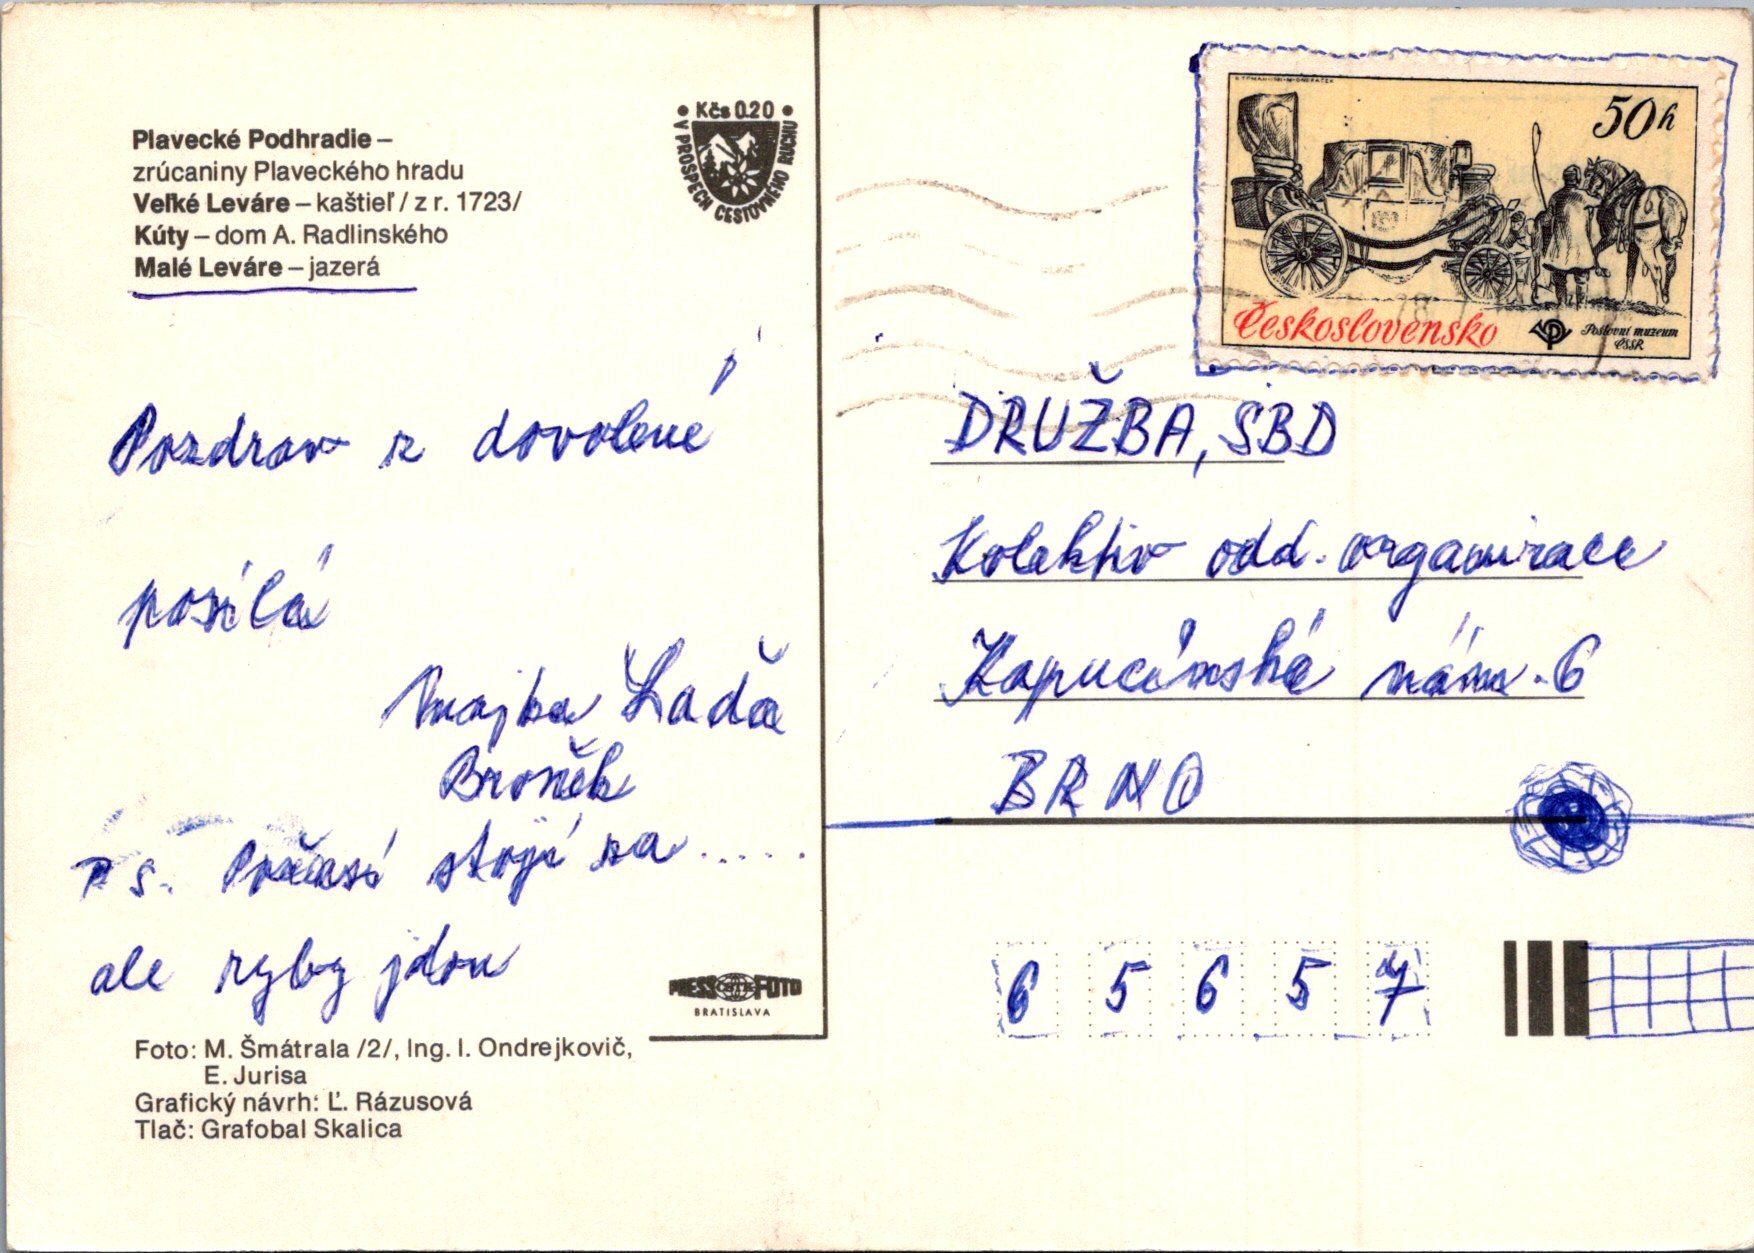 Plavecké Podhradie –
zrúcaniny Plaveckého hradu
Veľké Leváre – kaštieľ / z r. 1723/
Kúty – dom A. Radlinského
Malé Leváre – jazerá
• Kčs 0.20 •
V PROSPECH CESTOVNÉHO RUCHU
Pozdrav z dovolené
posílá
Majka Laďa
Broněk
P S. Počasí stojí za .....
ale ryby jdou
PRESSFOTO
BRATISLAVA
Foto: M. Šmátrala /2/, Ing. I. Ondrejkovič,
E. Jurisa
Grafický návrh: Ľ. Rázusová
Tlač: Grafobal Skalica
50h
Československo
Poštovní muzeum
ČSSR
DRUŽBA, SBD
Kolektiv odd. organizace
Kapucínské nám. 6
BRNO
6 5 6 5 7